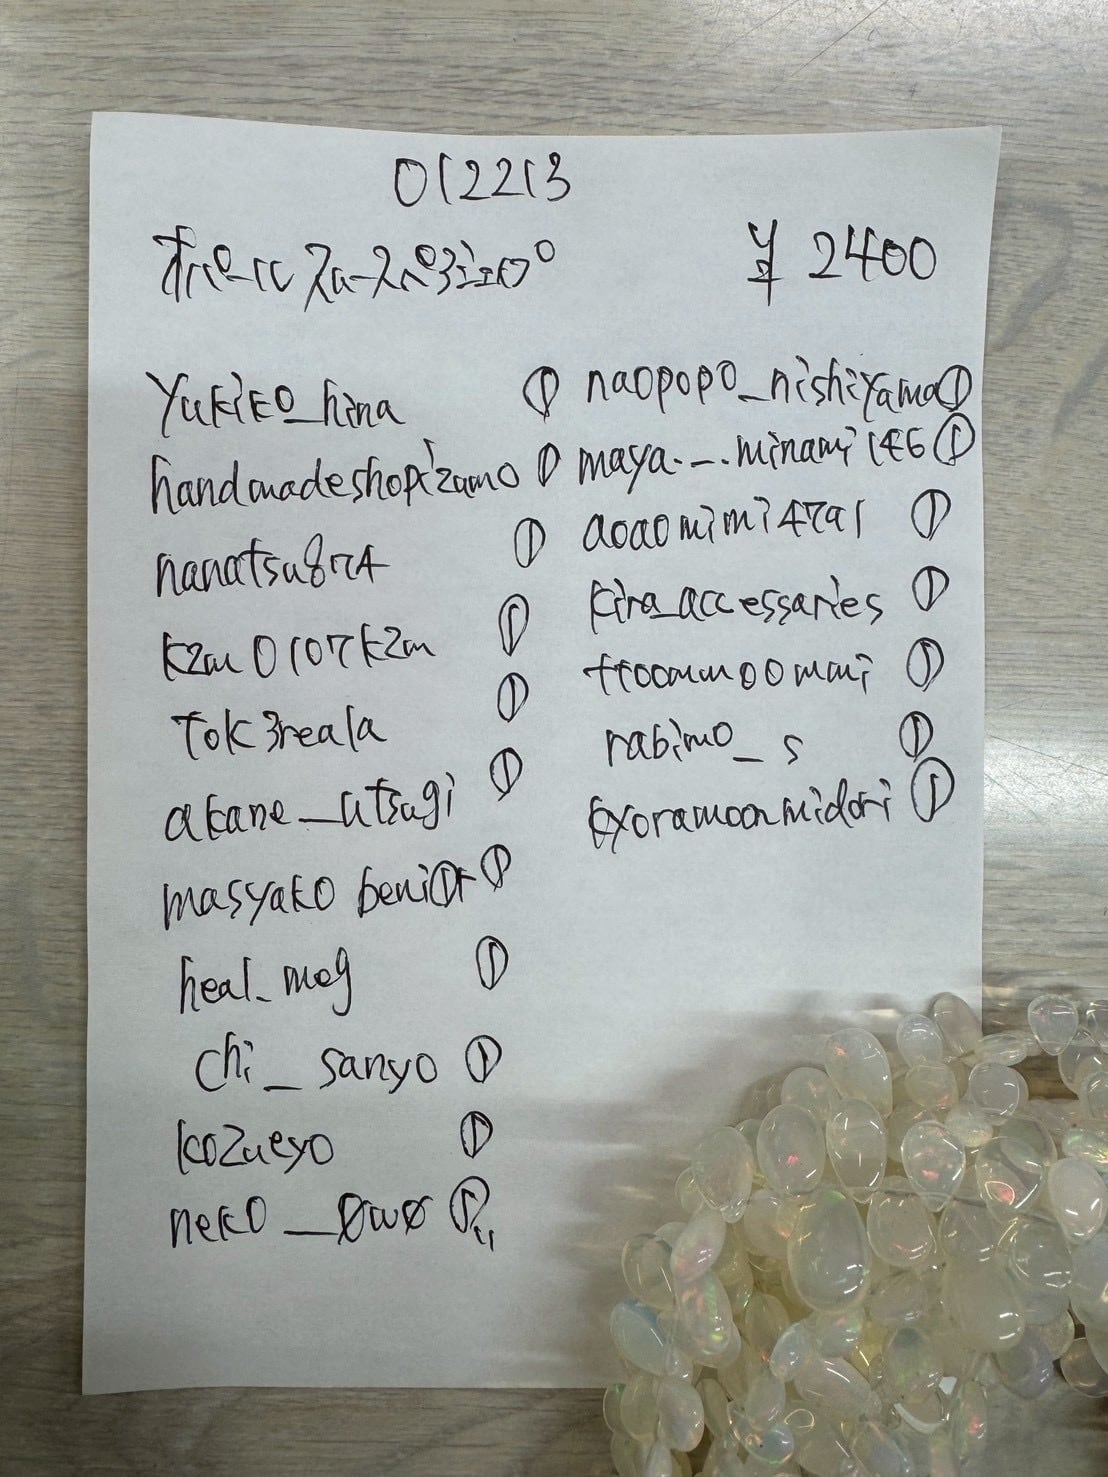 012213
オパール スムースペアシェイプ ¥2400
yukiko_hina ①
handmadeshopizumo ①
nanatsu874 ①
kzm0107kzm ①
tok3reala ①
akane_utsugi ①
masyako ①
heal_meg ①
chi_sanyo ①
kozueyo ①
neko_0w0 ①
naopopo_nishiyama ①
maya._.minami146 ①
aoaomimi4791 ①
kira_accessaries ①
ttoommoommi ①
rabimo_s ①
kyoramoonmidori ①